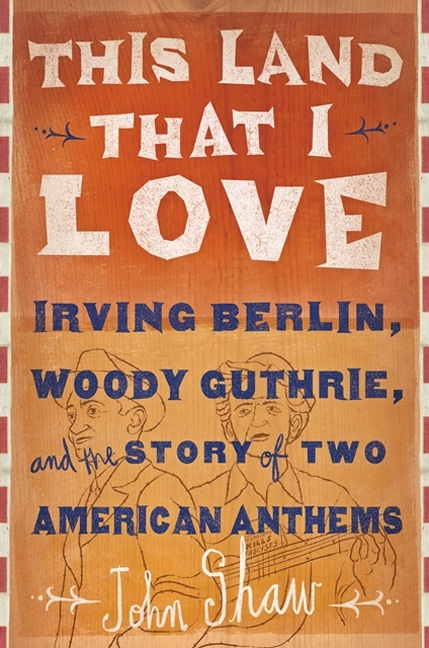 THIS LAND
THAT I
LOVE
IRVING BERLIN,
WOODY GUTHRIE,
and the STORY of TWO
AMERICAN ANTHEMS
KILLS
FASCISTS
John Shaw